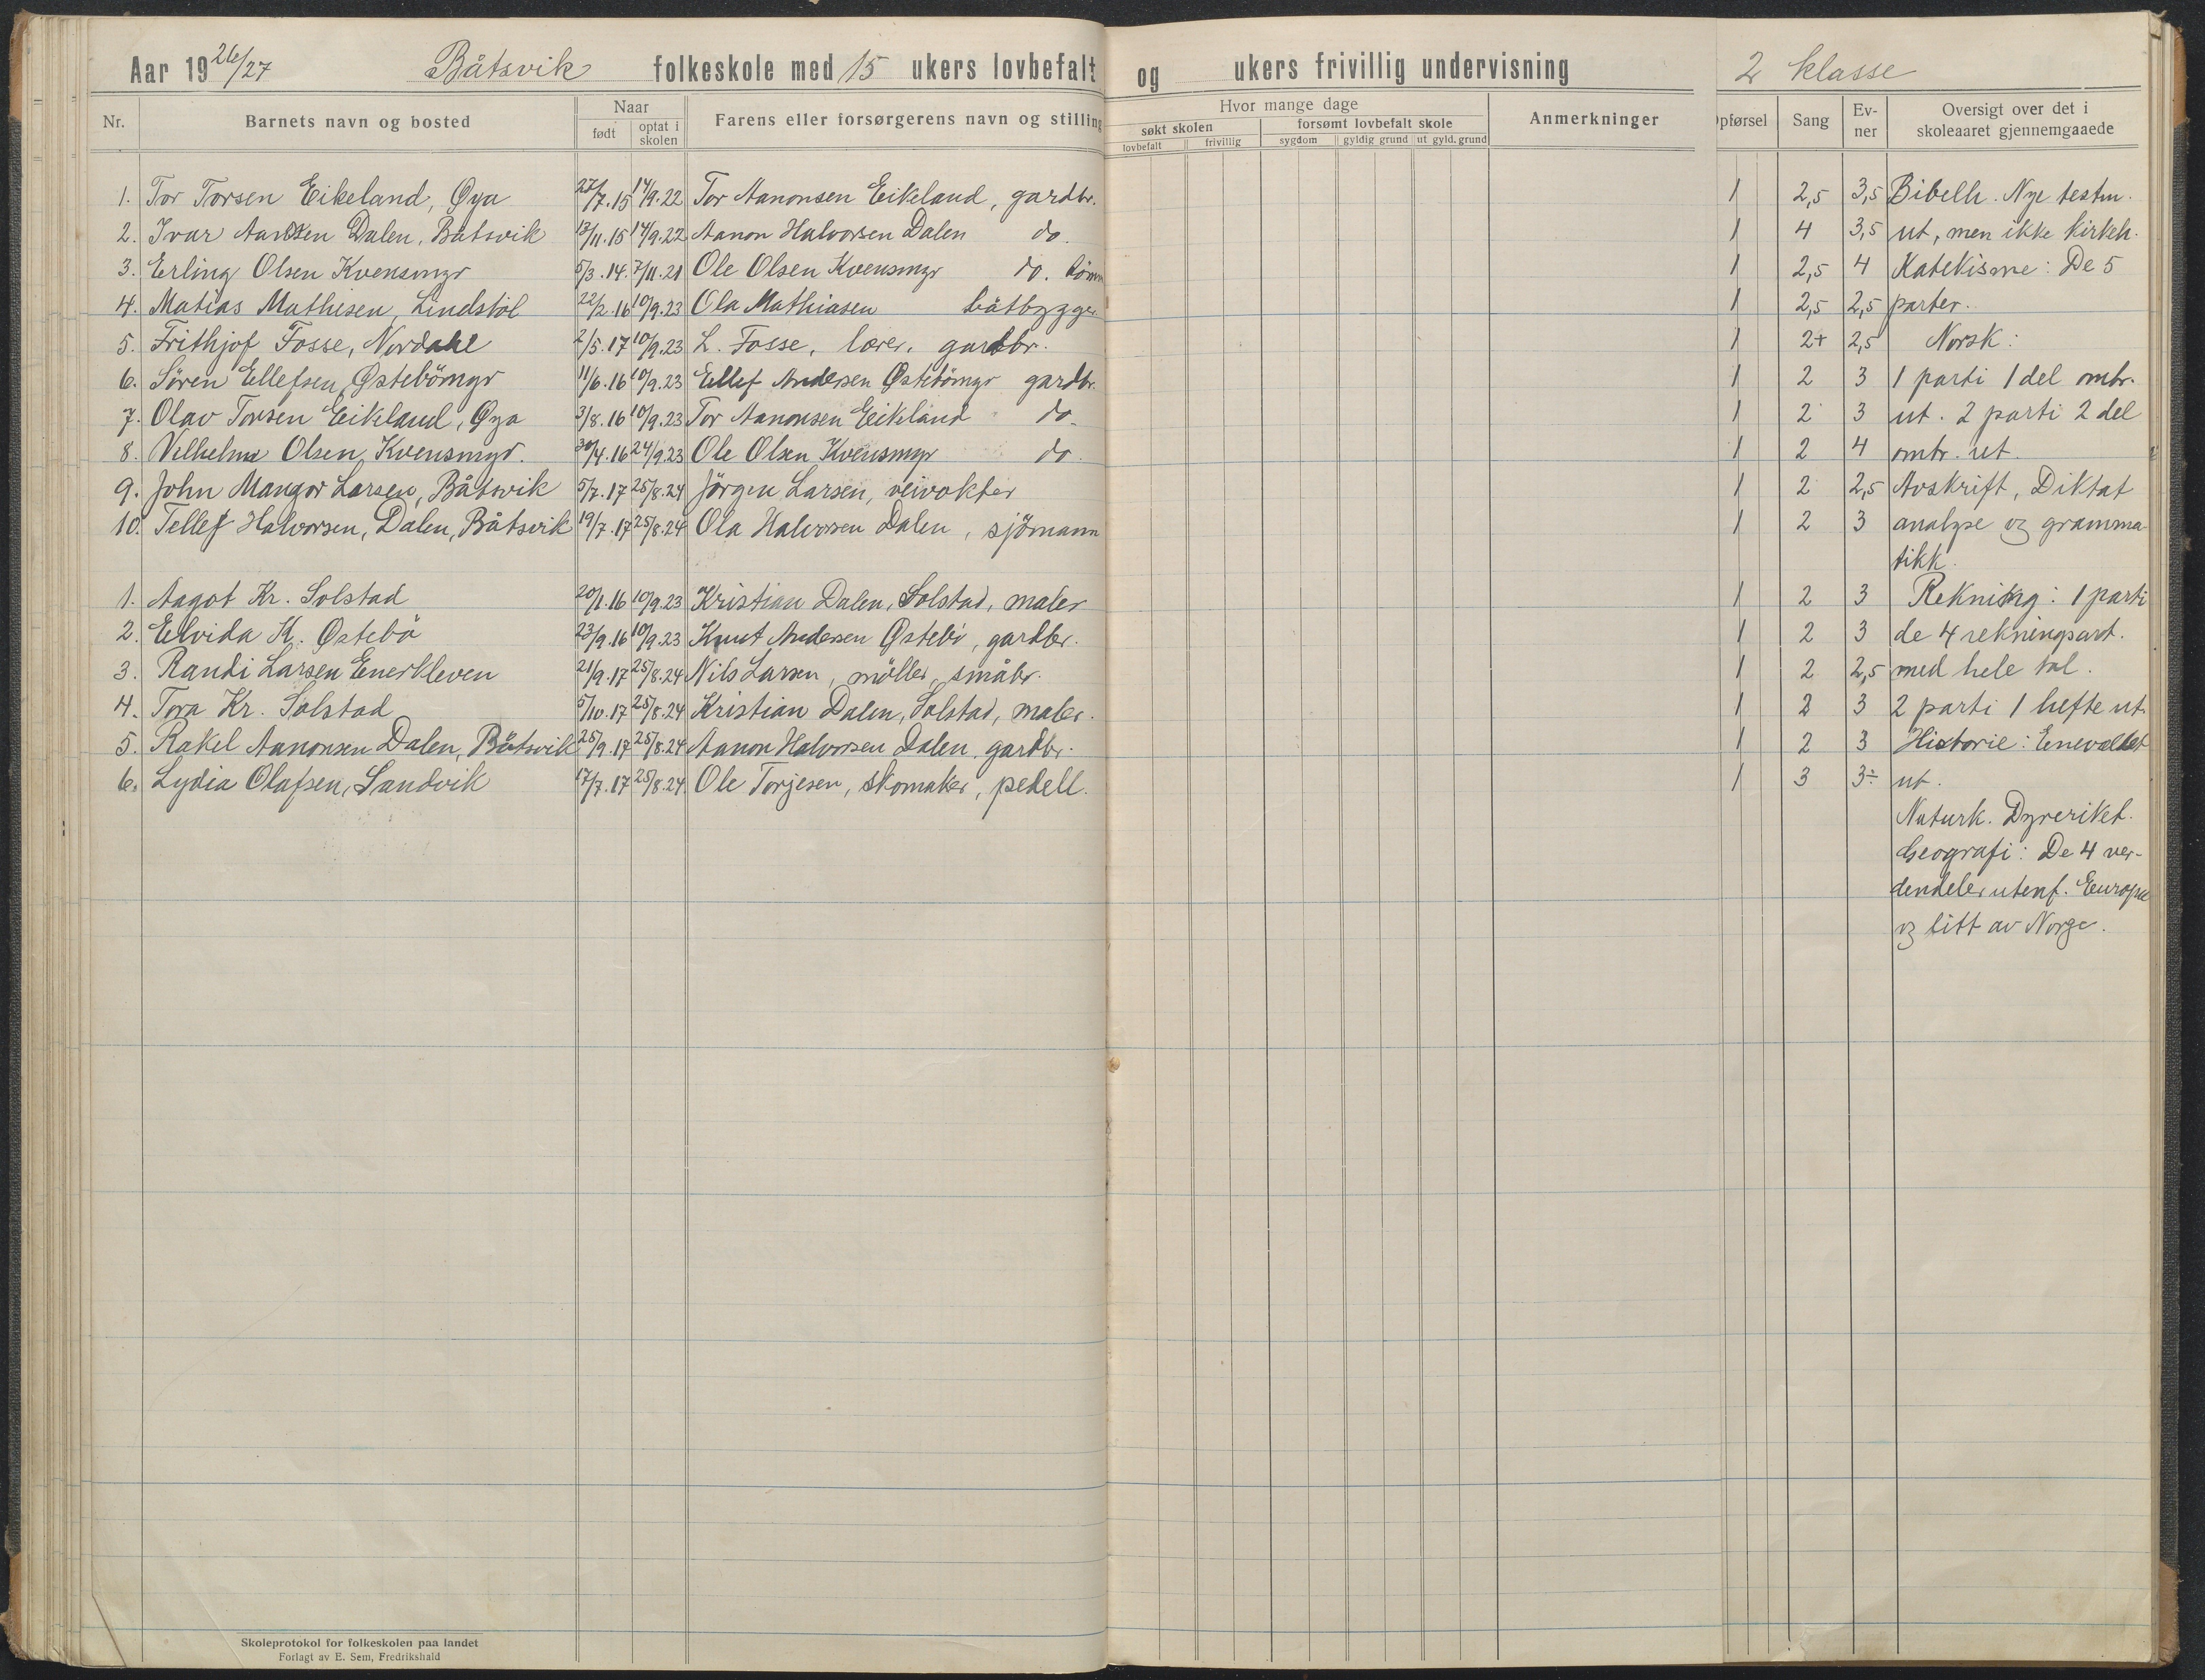 Aar 1926/27 Båtsvik folkeskole med 15 ukers lovbefalt og ukers frivillig undervisning 2 klasse
Nr. Barnets navn og bosted Naar født optat i skolen Farens eller forsørgerens navn og stilling Hvor mange dage søkt skolen lovbefalt frivillig forsømt lovbefalt skole sygdom gyldig grund ut gyld. grund Anmerkninger pførsel Sang Ev-ner Oversigt over det i skoleaaret gjennemgaaede
1. Tor Torsen Eikeland, Øya 27/7.15 14/9.22 Tor Aanonsen Eikeland, gardbr. 1 2,5 3,5 Bibelh. Nye testm.
2. Ivar Dalen, Båtsvik 13/11.15 14/9.22 Aanon Halvorsen Dalen do. 1 4 3,5 ut, men ikke kirkeh.
3. Erling Olsen Kvensmyr 5/3.14. 7/11.21 Ole Olsen Kvensmyr do. 1 2,5 4 Katekisme: De 5
4. Matias Mathisen, Lindstöl 22/2.16 10/9.23 Ola Mathiasen båtbygger 1 2,5 2,5 parter.
5. Frithjof Fosse, Nordahl 2/5.17 10/9.23 L. Fosse, lærer, gardbr. 1 2+ 2,5 Norsk:
6. Sören Ellefsen, Østebömyr 11/6.16 10/9.23 Ellef Andersen Østebömyr gardbr. 1 2 3 1 parti 1 del ombr.
7. Olav Torsen Eikeland, Øya 3/8.16 10/9.23 Tor Aanonsen Eikeland do. 1 2 3 ut. 2 parti 2 del
8. Vilhelm Olsen, Kvensmyr. 30/4.16 24/9.23 Ole Olsen Kvensmyr do. 1 2 4 ombr. ut.
9. John Mangor Larsen, Båtsvik 5/7.17 25/8.24 Jörgen Larsen, veivokter 1 2 2,5 Avskrift, Diktat
10. Tellef Halvorsen, Dalen, Båtsvik 19/7.17 25/8.24 Ola Halvorsen Dalen, sjömann 1 2 3 analyse og gramma-
tikk.
1. Aagot Kr. Solstad 20/1.16 10/9.23 Kristian Dalen, Solstad, maler 1 2 3 Rekning: 1 parti
2. Elvida K. Østebö 23/9.16 10/9.23 Knut Andersen Østebö, gardbr. 1 2 3 de 4 rekningsart.
3. Randi Larsen Enerkleven 21/9.17 25/8.24 Nils Larsen, möller, småbr. 1 2 2,5 med hele tal.
4. Tora Kr. Solstad 5/10.17 25/8.24 Kristian Dalen, Solstad, maler. 1 2 3 2 parti 1 hefte ut.
5. Rakel Aanonsen Dalen, Båtsvik 25/9.17 25/8.24 Aanon Halvorsen Dalen, gardbr. 1 2 3 Historie: Eneveldet
6. Lydia Olafsen, Sandvik 17/7.17 25/8.24 Ole Torjesen, skomaker, pedell. 1 3 3÷ ut.
Naturk. Dyreriket.
Geografi: De 4 ver-
dendeler utenf. Europa
og litt av Norge.
Skoleprotokol for folkeskolen paa landet
Forlagt av E. Sem, Fredrikshald